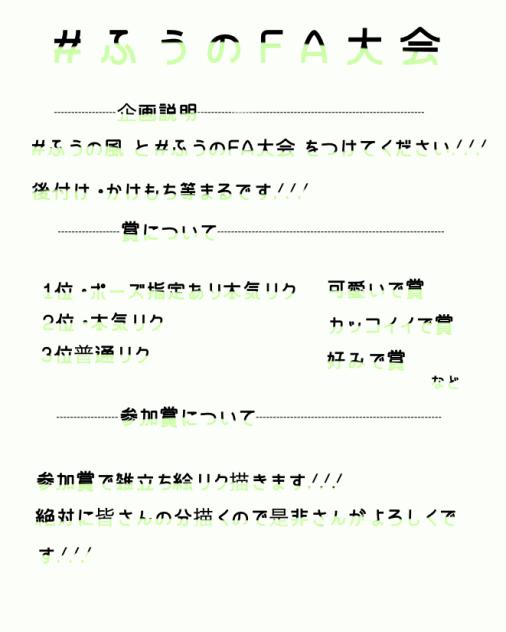 #ふうのFA大会
企画説明
#ふうの風 と#ふうのFA大会 をつけてください!!!
後付け・かけもち等まるです!!!
賞について
1位・ポーズ指定あり本気リク
可愛いで賞
2位・本気リク
カッコイイで賞
3位普通リク
好みで賞
など
参加賞について
参加賞で雑立ち絵リク描きます!!!
絶対に皆さんの分描くので是非さんがよろしくで
す!!!